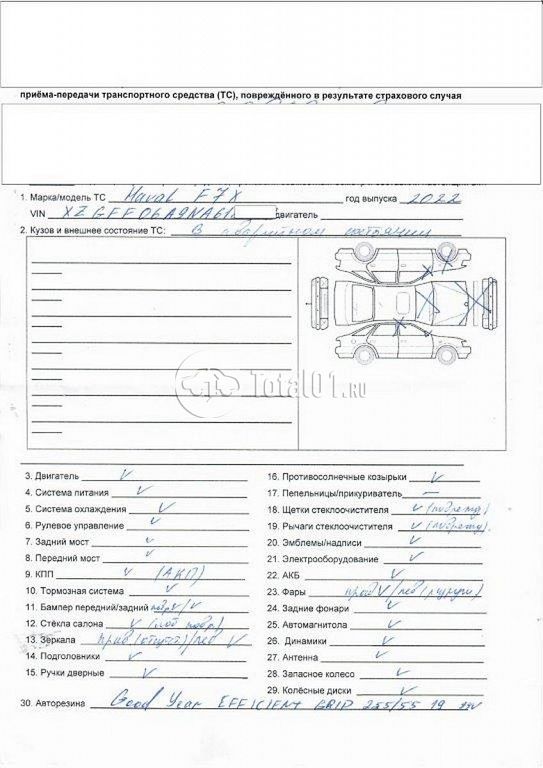 приёма-передачи транспортного средства (ТС), повреждённого в результате страхового случая
1. Марка/модель ТС Haval F7X год выпуска 2022
VIN XZGFF06A9NA61 двигатель
2. Кузов и внешнее состояние ТС: в аварийном состоянии
Total01.RU
3. Двигатель V
4. Система питания V
5. Система охлаждения V
6. Рулевое управление V
7. Задний мост V
8. Передний мост V
9. КПП V (АКП)
10. Тормозная система V
11. Бампер передний/задний повр V/V
12. Стёкла салона V (лоб повр)
13. Зеркала прав (отсут)/лев V
14. Подголовники V
15. Ручки дверные V
16. Противосолнечные козырьки V
17. Пепельницы/прикуриватель —
18. Щетки стеклоочистителя V
19. Рычаги стеклоочистителя V
20. Эмблемы/надписи V
21. Электрооборудование V
22. АКБ V
23. Фары прав V/лев
24. Задние фонари V
25. Автомагнитола V
26. Динамики V
27. Антенна V
28. Запасное колесо V
29. Колёсные диски V
30. Авторезина Good Year EFFICIENT GRIP 255/55 19